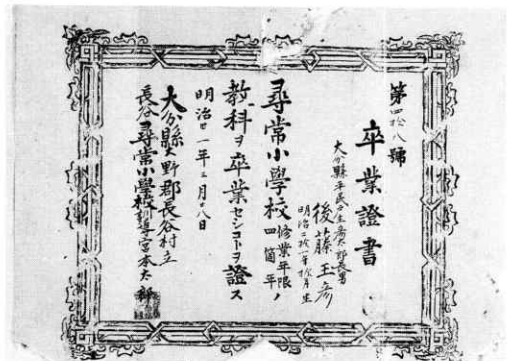 第四拾八號
卒業證書
大分縣平民
後藤玉彦
明治二拾一年拾月生
尋常小學校修業年限四箇年ノ
教科ヲ卒業セシコトヲ證ス
明治卅一年三月廿八日
大分縣大野郡長谷村立
長谷尋常小學校訓導宮本大